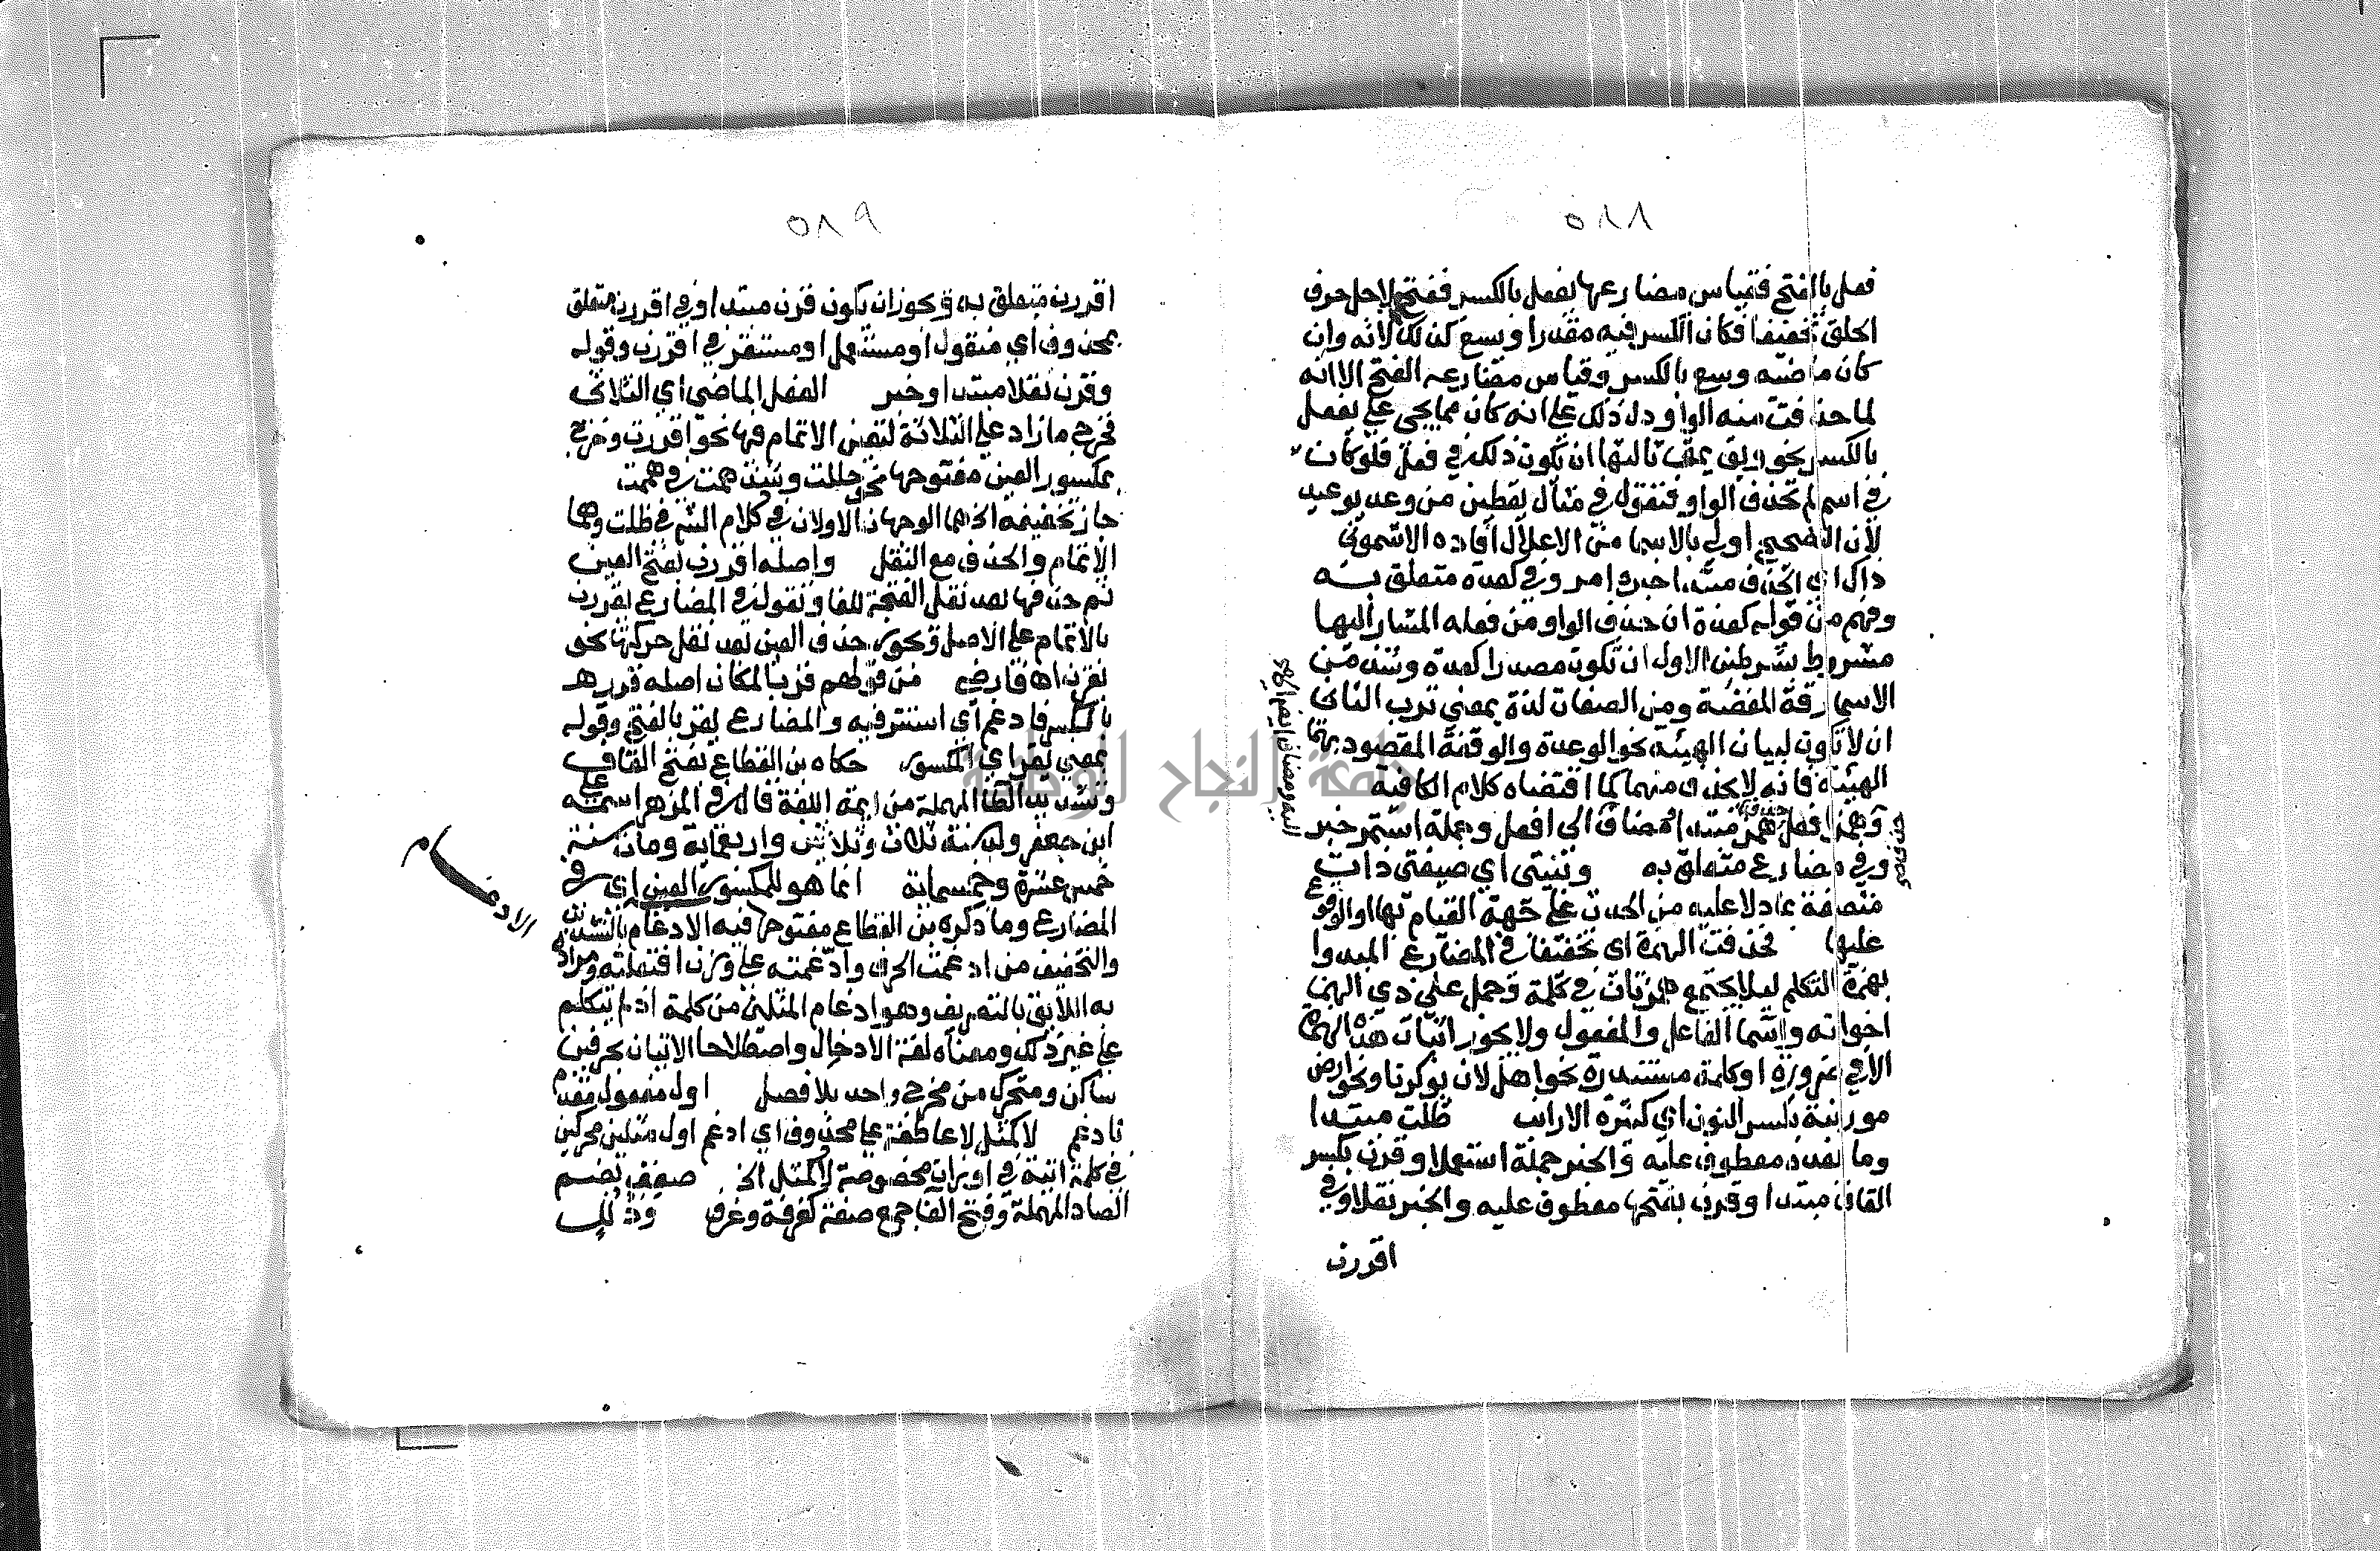 ٥٨٨
فعل بالفتح فقياس مضارعها يفعل بالكسر ففتح لاجل حرف
الحلق تخفيفا فكان الكسر فيه مقدرا ويسع كذلك لانه وان
كان ماضيه وسع بالكسر وقياس مضارعه الفتح الا انه
لما حذفت منه الواو دل ذلك على انه كان مما يجى على يفعل
بالكسر نحو ومق يمق ثالثها ان تكون ذلك في فعل فلو كان
في اسم لم تحذف الواو فتقول في مثال يقطين من وعد يوعيد
لان التصحيح اولى بالاسما من الاعلال افاده الاشمونى
ذاك اي الحذف مبتدا خبره امر وفي كعدة متعلق به
وفهم من قوله كعدة ان حذف الواو من فعله المشار اليها
مشروط بشرطين الاول ان تكون مصدرا كعدة وشذ من
الاسما رقة للفضة ومن الصفات لدة بمعنى ترب الثانى
ان لا تكون لبيان الهيئة نحو الوعدة والوقفة المقصود بهما
الهيئة فانه لا يحذف منهما كما اقتضاه كلام الكافيه
وهمز افعل همز مبتدا مضاف الى افعل وجملة استمر خبر
وفي مضارع متعلق به وبنيتى اي صيغتى ذات
متصفة بما دلا عليه من الحدث على جهة القيام بها او الوقوع
عليها فحذفت الهمزة اى تخفيفا في المضارع المبدوا
بهمزة التكلم ليلا يجتمع همزتان في كلمة وحمل على ذي الهمزة
اخواته واسما الفاعل والمفعول ولا يجوز اثبات هذه الهمزة
الا في ضرورة او كلمة مستندرة نحو اهل لان يوكرما ونحو ارض
مورنبة بكسر النون اي كثيرة الارانب ظلت مبتدا
وما بعده معطوف عليه والخبر جملة استعملا وقرن بكسر
القاف مبتدا وقرن بفتحها معطوف عليه والخبر نقلا وفي
اقررن
٥٨٩
اقررن متعلق به ويجوز ان يكون قرن مبتدا وفي اقررن متعلق
بمحذوف اي منقول او مستعمل او مستقر في اقررن وقوله
وقرن نقلا مبتدا وخبر الفعل الماضي اي الثلاثى
فخرج ما زاد على الثلاثة لتعين الاتمام فيها نحو اقررت وخرج
بمكسور العين مفتوحها نحو حللت وشذ همت في هممت
جاز تخفيفه الخ هما الوجهان الاولان في كلام الشم في ظلت وهما
الاتمام والحذف مع النقل واصله اقررن بفتح العين
ثم حذفها بعد نقل الفتحة للفا وتقول في المضارع يقررن
بالاتمام على الاصل ويجوز حذف العين بعد نقل حركتها نحو
يقرن اه فارضي من قولهم قر بالمكان اصله قرر هـ
بالكسر فادغم اي استقر فيه والمضارع يقر بالفتح وقوله
بمعنى يقر اي المكسور حكاه بن القطاع بفتح القاف
وتشديد الطا المهملة من ايمة اللغة قال في المزهر اسمه على
ابن جعفر ولد سنة ثلاث وثلاثين واربعماية ومات سنة
خمس عشرة وخمسماية انما هو للمكسور العين اي في
المضارع وما ذكره بن القطاع مفتوحها فيه الادغام بالتشديد
والتخفيف من ادغمت الحرف وادغمته على وزن افتعلته ومراده
به اللايق بالتصريف وهو ادغام المثلين من كلمة اذ لم يتكلم
على غير ذلك ومعناه لغة الادخال واصطلاحا الاتيان بحرفين
ساكن ومتحرك من مخرج واحد بلا فصل اول مفعول مقدم
نا دغم لا كمثل لا عاطفة على محذوف اي ادغم اول مثلين محركين
في كلمة اتية في اوزان مخصوصة لا كمثل الخ صفف بضم
الصاد المهملة وفتح الفا جمع صفة كغرفة وغرف وذلل
الادغام